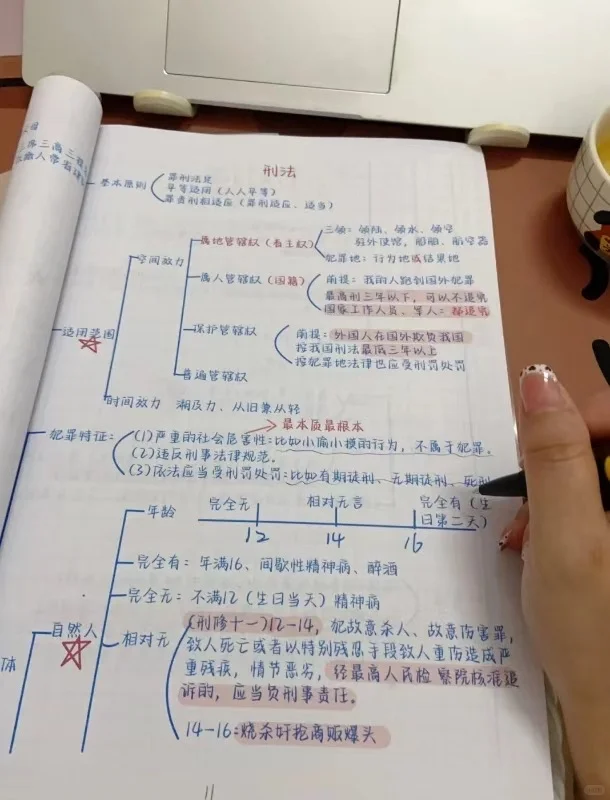 刑法
基本原则
罪刑法定
平等适用（人人平等）
罪责刑相适应（罪刑适应、适当）
适用范围
空间效力
属地管辖权（看主权）
三领：领陆、领水、领空
驻外使馆，船舶、航空器
犯罪地：行为地或结果地
属人管辖权（国籍）
前提：我国人跑到国外犯罪
最高刑三年以下，可以不追究
国家工作人员、军人：都追究
保护管辖权
前提：外国人在国外欺负我国
按我国刑法最低三年以上
按犯罪地法律也应受刑罚处罚
普遍管辖权
时间效力 溯及力、从旧兼从轻
最本质最根本
犯罪特征：
(1)严重的社会危害性：比如小偷小摸的行为，不属于犯罪。
(2)违反刑事法律规范。
(3)依法应当受刑罚处罚：比如有期徒刑、无期徒刑、死刑
体
自然人
年龄
完全无 相对无 完全有（生
日第二天）
12 14 16
完全有：年满16、间歇性精神病、醉酒
完全无：不满12（生日当天）精神病
相对无
(刑修十一)12-14，犯故意杀人、故意伤害罪，
致人死亡或者以特别残忍手段致人重伤造成严
重残疾，情节恶劣，经最高人民检察院核准追
诉的，应当负刑事责任。
14-16：烧杀奸抢商贩爆头
11